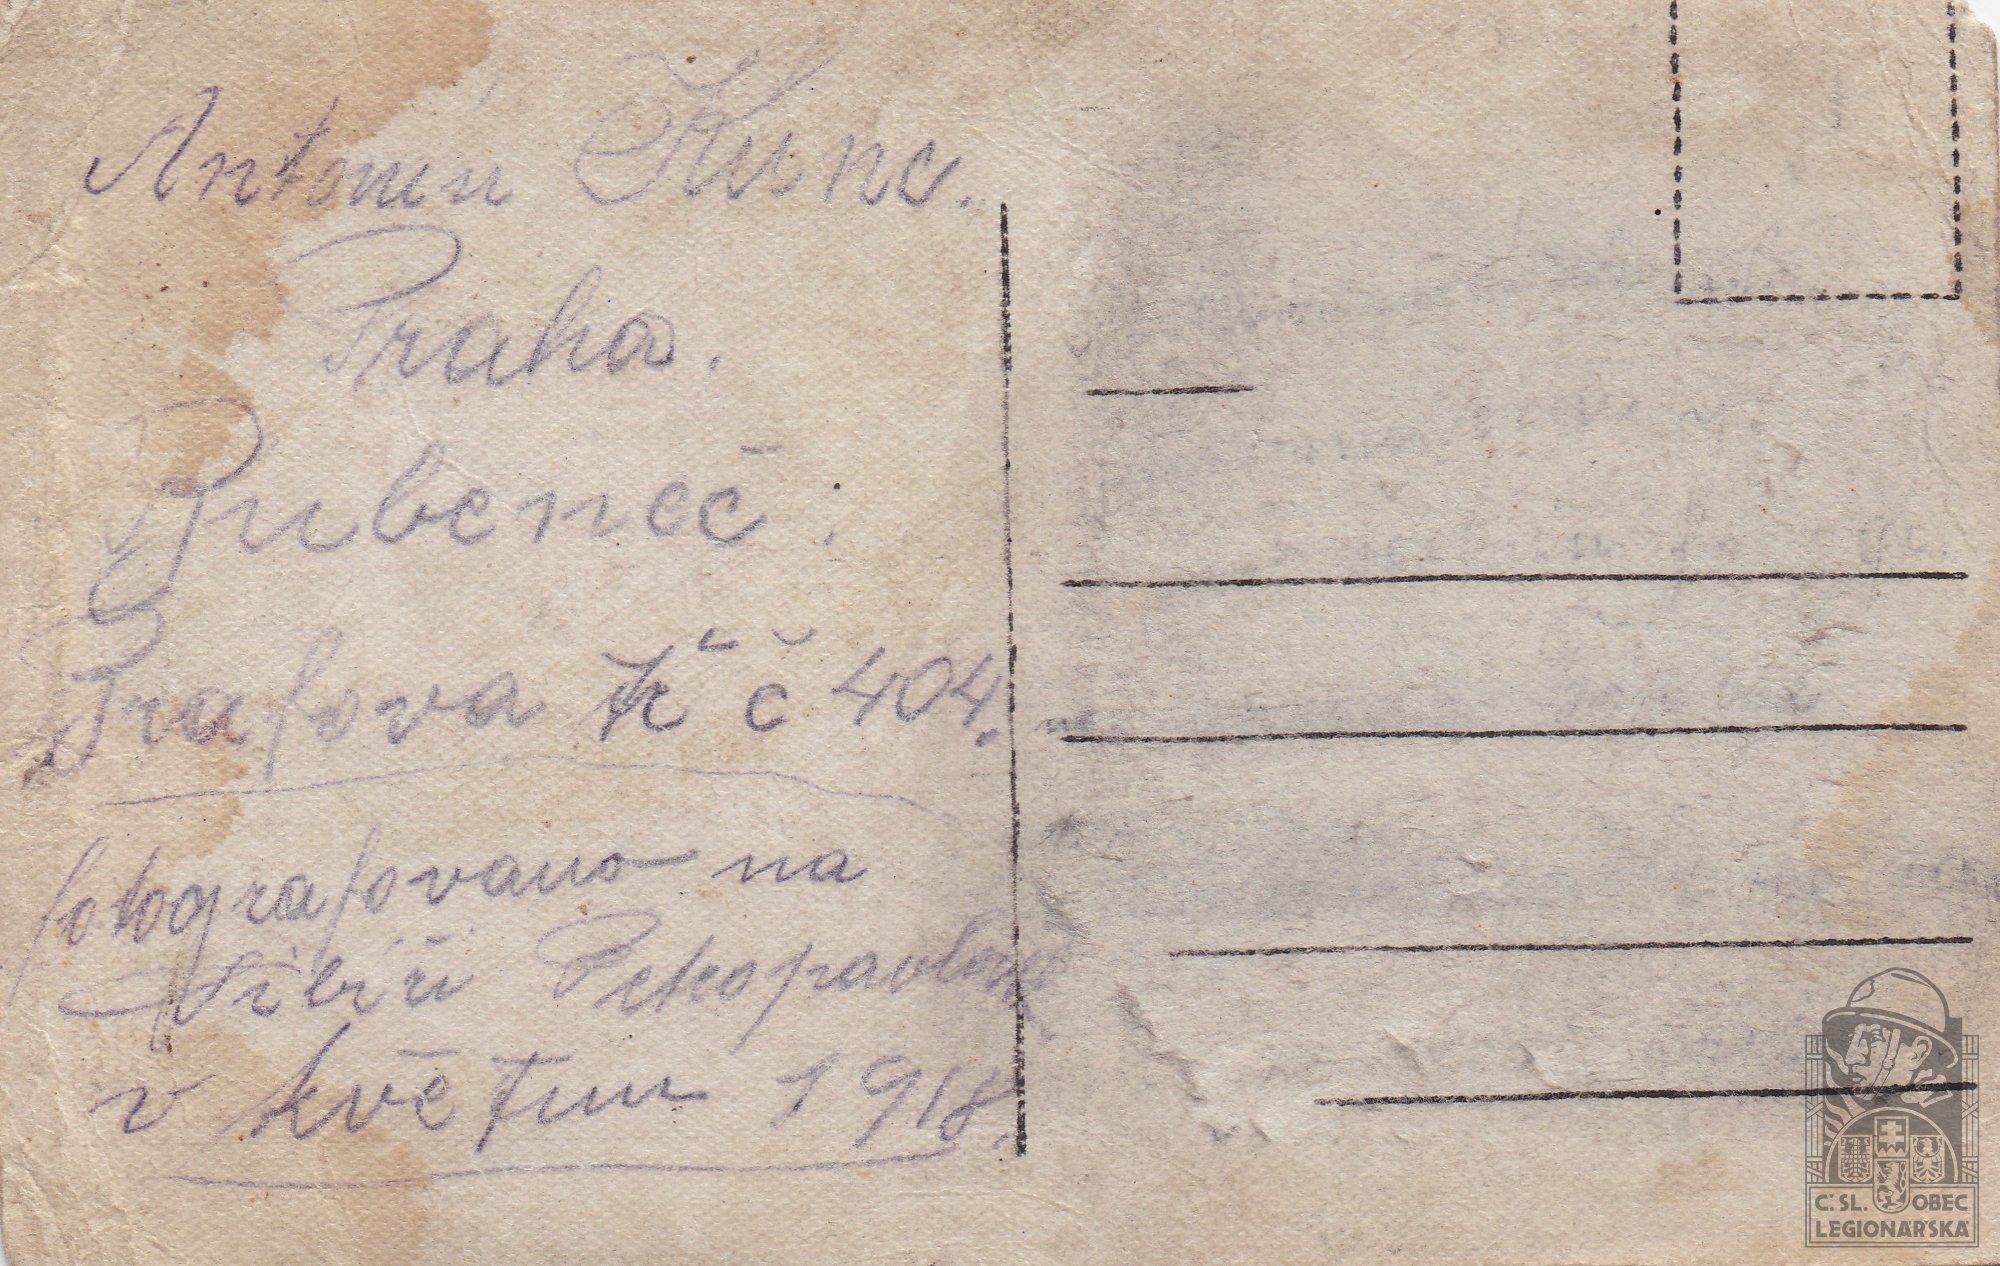 Antonín Kunc.
Praha.
Bubeneč.
Brafova tř č 404.
fotografovano na
Sibiři Petropavlovs
v květnu 1918.
Č. SL. OBEC
LEGIONÁŘSKÁ